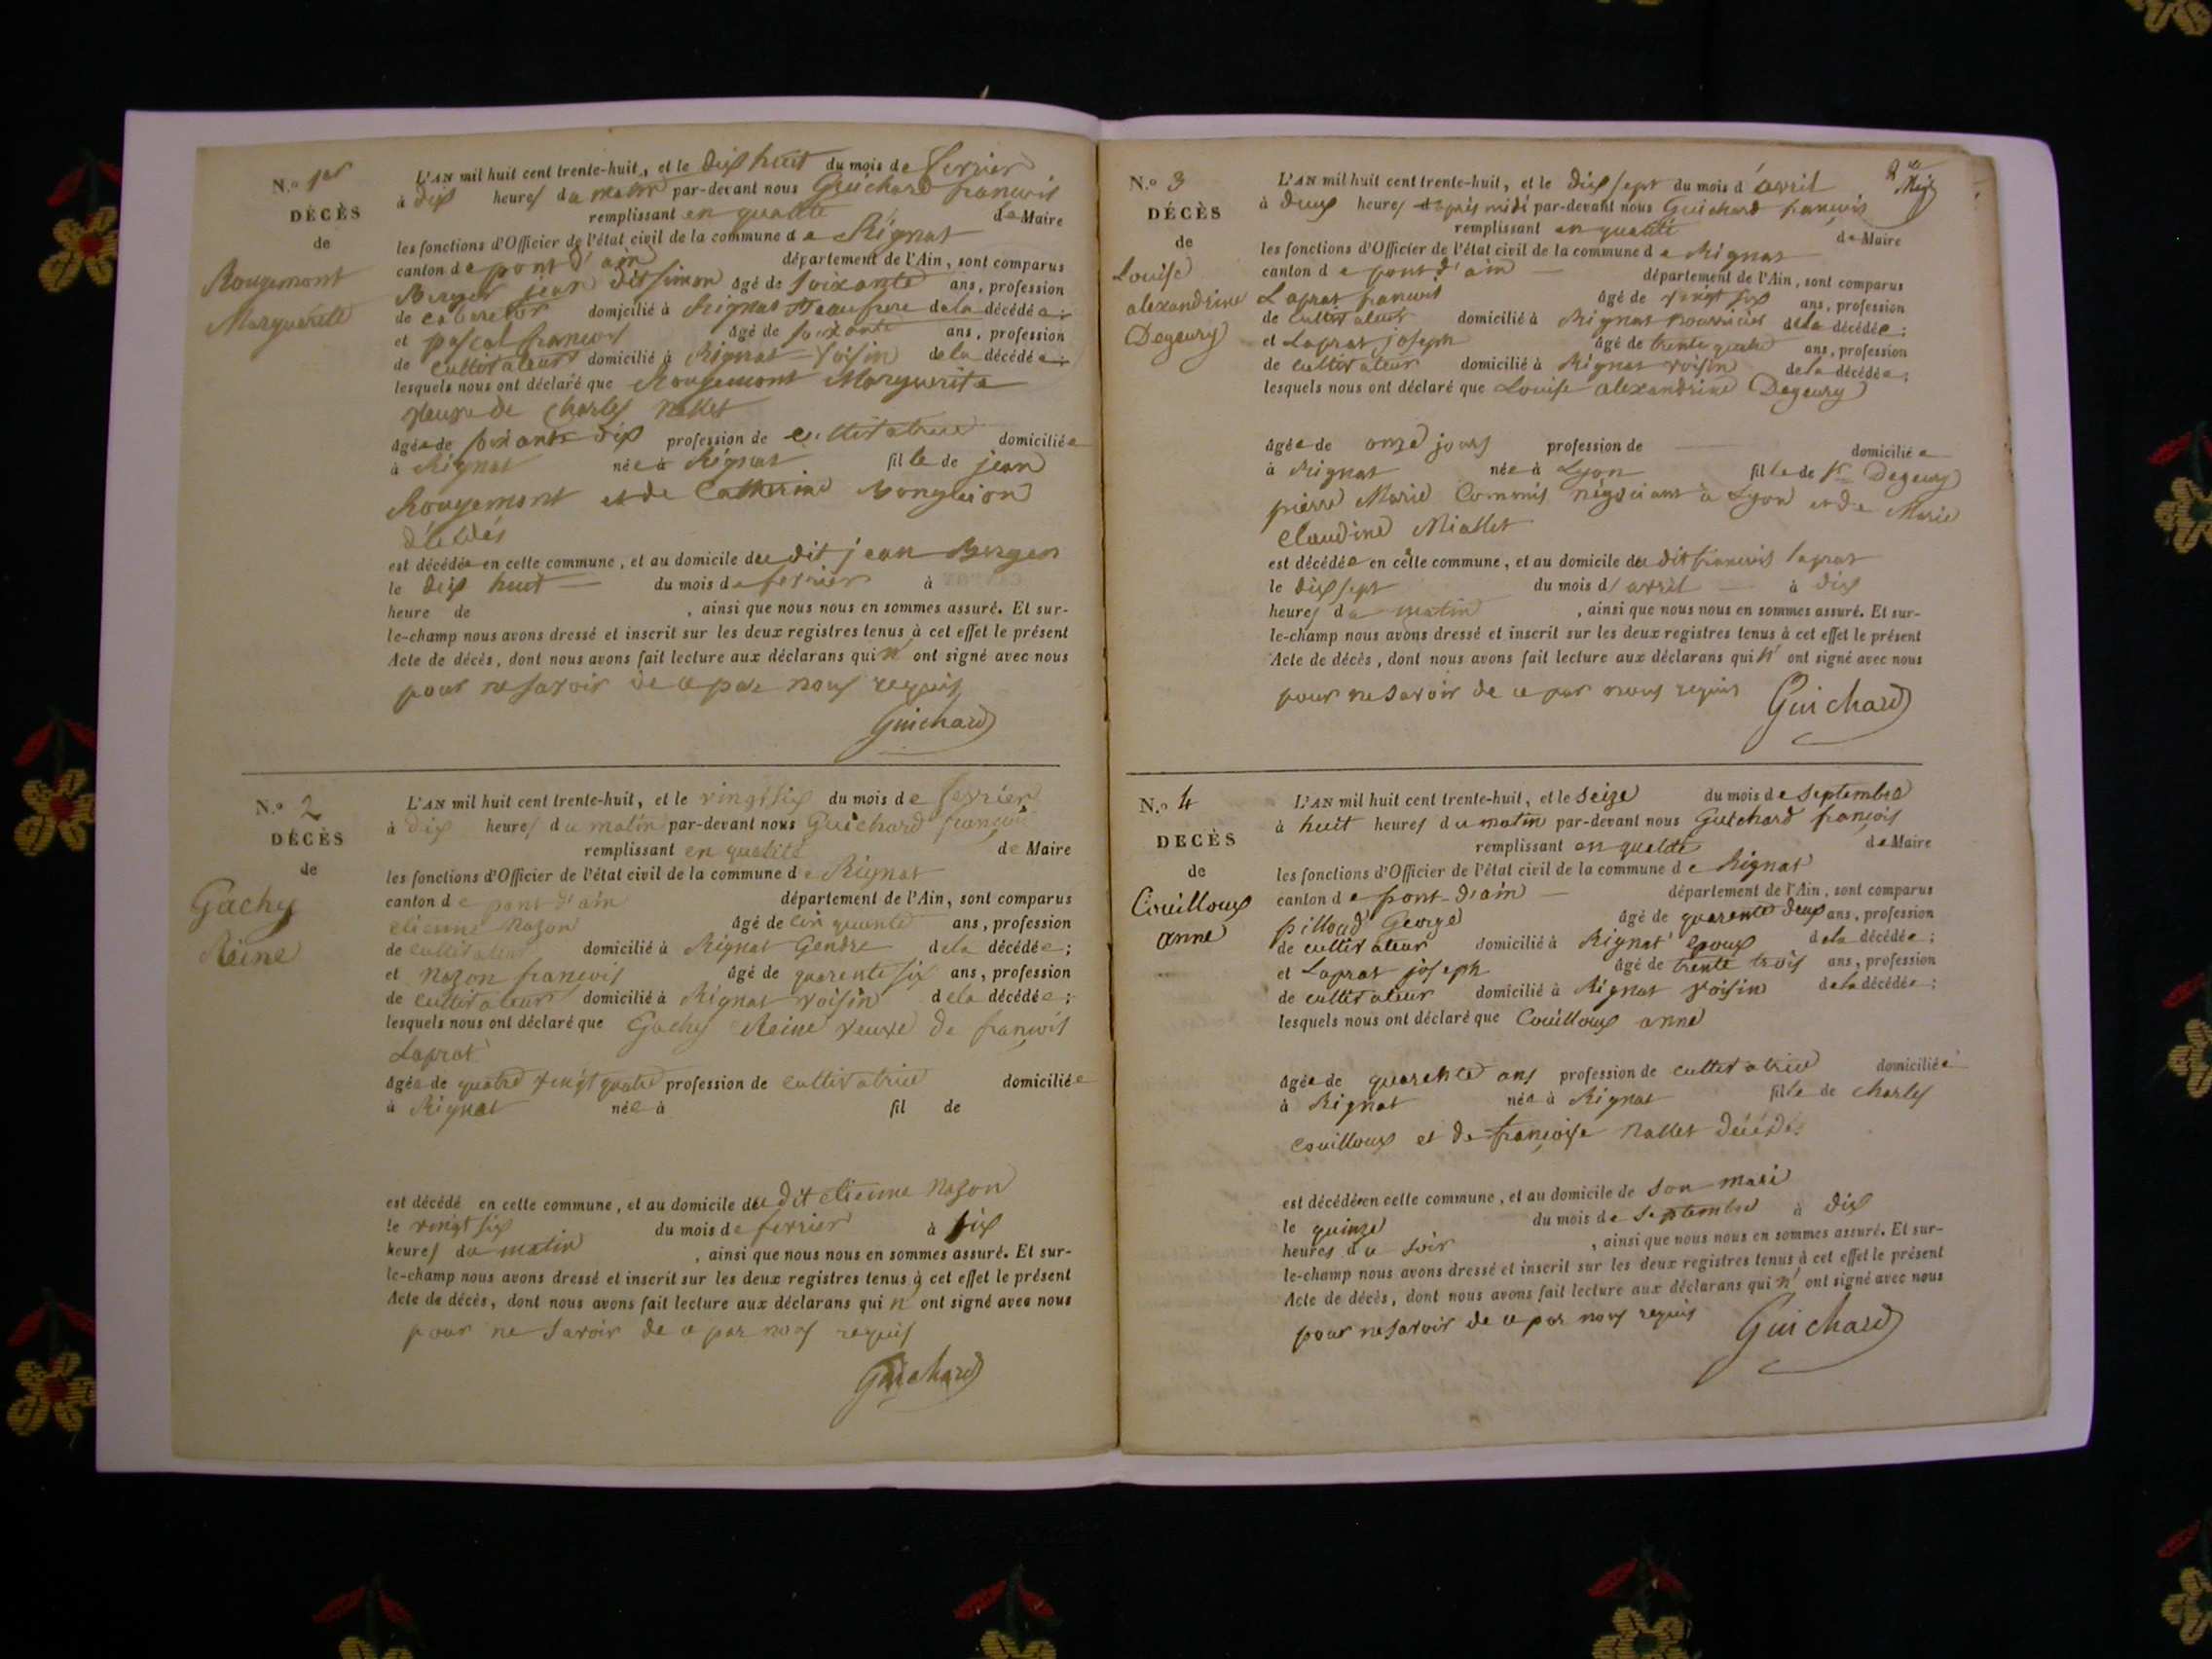 N.º 1er
DÉCÈS
de
Rougemont
Marguerite
L'AN mil huit cent trente-huit, et le dix huit du mois de fevrier
à dix heures du matin par-devant nous Guichard francois
remplissant en qualité de Maire
les fonctions d'Officier de l'état civil de la commune de Rignat
canton de pont d'ain département de l'Ain, sont comparus
Berger jean dit simon âgé de soixante ans, profession
de cabaretier domicilié à Rignat Beaufrere de la décédée;
et pascal francois âgé de soixante ans, profession
de cultivateur domicilié à Rignat voisin de la décédée;
lesquels nous ont déclaré que Rougemont Marguerite
veuve de Charles Nallet
âgée de soixante dix profession de cultivatrice domiciliée
à Rignat née à Rignat fille de jean
Rougemont et de Catherine
décédés
est décédée en cette commune, et au domicile du dit jean Berger
le dix huit du mois de fevrier à
heure de , ainsi que nous nous en sommes assuré. Et sur-
le-champ nous avons dressé et inscrit sur les deux registres tenus à cet effet le présent
Acte de décès, dont nous avons fait lecture aux déclarans qui n' ont signé avec nous
pour ne savoir de ce par nous requis
Guichard
N.º 2
DÉCÈS
de
Gachy
Reine
L'AN mil huit cent trente-huit, et le vingt six du mois de fevrier
à dix heures du matin par-devant nous Guichard françois
remplissant en qualité de Maire
les fonctions d'Officier de l'état civil de la commune de Rignat
canton de pont d'ain département de l'Ain, sont comparus
etienne Nazon âgé de cinquante ans, profession
de cultivateur domicilié à Rignat Gendre de la décédée;
et Nazon francois âgé de quarente six ans, profession
de cultivateur domicilié à Rignat voisin de la décédée;
lesquels nous ont déclaré que Gachy Reine veuve de françois
Laprat
âgée de quatre vingt quatre profession de cultivatrice domiciliée
à Rignat née à fil de
est décédé en cette commune, et au domicile du dit etienne Nazon
le vingt six du mois de fevrier à six
heures du matin , ainsi que nous nous en sommes assuré. Et sur-
le-champ nous avons dressé et inscrit sur les deux registres tenus à cet effet le présent
Acte de décès, dont nous avons fait lecture aux déclarans qui n' ont signé avec nous
pour ne savoir de ce par nous requis
Guichard
N.º 3
DÉCÈS
de
Louise
alexandrine
Degeury
L'AN mil huit cent trente-huit, et le dix sept du mois d'avril
à deux heures d'après midi par-devant nous Guichard francois
remplissant en qualité de Maire
les fonctions d'Officier de l'état civil de la commune de Rignat
canton de pont d'ain département de l'Ain, sont comparus
Laprat francois âgé de vingt six ans, profession
de cultivateur domicilié à Rignat nourricier de la décédée;
et Laprat joseph âgé de trente quatre ans, profession
de cultivateur domicilié à Rignat voisin de la décédée;
lesquels nous ont déclaré que Louise alexandrine Degeury
âgée de onze jours profession de domiciliée
à Rignat née à Lyon fille de Sr Degeury
pierre Marie Commis négociant à Lyon et de Marie
Claudine Miallet
est décédée en cette commune, et au domicile du dit francois laprat
le dix sept du mois d'avril à dix
heures du matin , ainsi que nous nous en sommes assuré. Et sur-
le-champ nous avons dressé et inscrit sur les deux registres tenus à cet effet le présent
Acte de décès, dont nous avons fait lecture aux déclarans qui n' ont signé avec nous
pour ne savoir de ce par nous requis
Guichard
N.º 4
DECÈS
de
Couilloux
anne
L'AN mil huit cent trente-huit, et le seize du mois de septembre
à huit heures du matin par-devant nous Guichard françois
remplissant en qualité de Maire
les fonctions d'Officier de l'état civil de la commune de Rignat
canton de pont-d'ain département de l'Ain, sont comparus
pilloud George âgé de quarente deux ans, profession
de cultivateur domicilié à Rignat epoux de la décédée;
et Laprat joseph âgé de trente trois ans, profession
de cultivateur domicilié à Rignat voisin de la décédée;
lesquels nous ont déclaré que Couilloux anne
âgée de quarente ans profession de cultivatrice domiciliée
à Rignat née à Rignat fille de Charles
Couilloux et de françoise Nallet décédés
est décédée en cette commune, et au domicile de son mari
le quinze du mois de septembre à dix
heures du soir , ainsi que nous nous en sommes assuré. Et sur-
le-champ nous avons dressé et inscrit sur les deux registres tenus à cet effet le présent
Acte de décès, dont nous avons fait lecture aux déclarans qui n' ont signé avec nous
pour ne savoir de ce par nous requis
Guichard